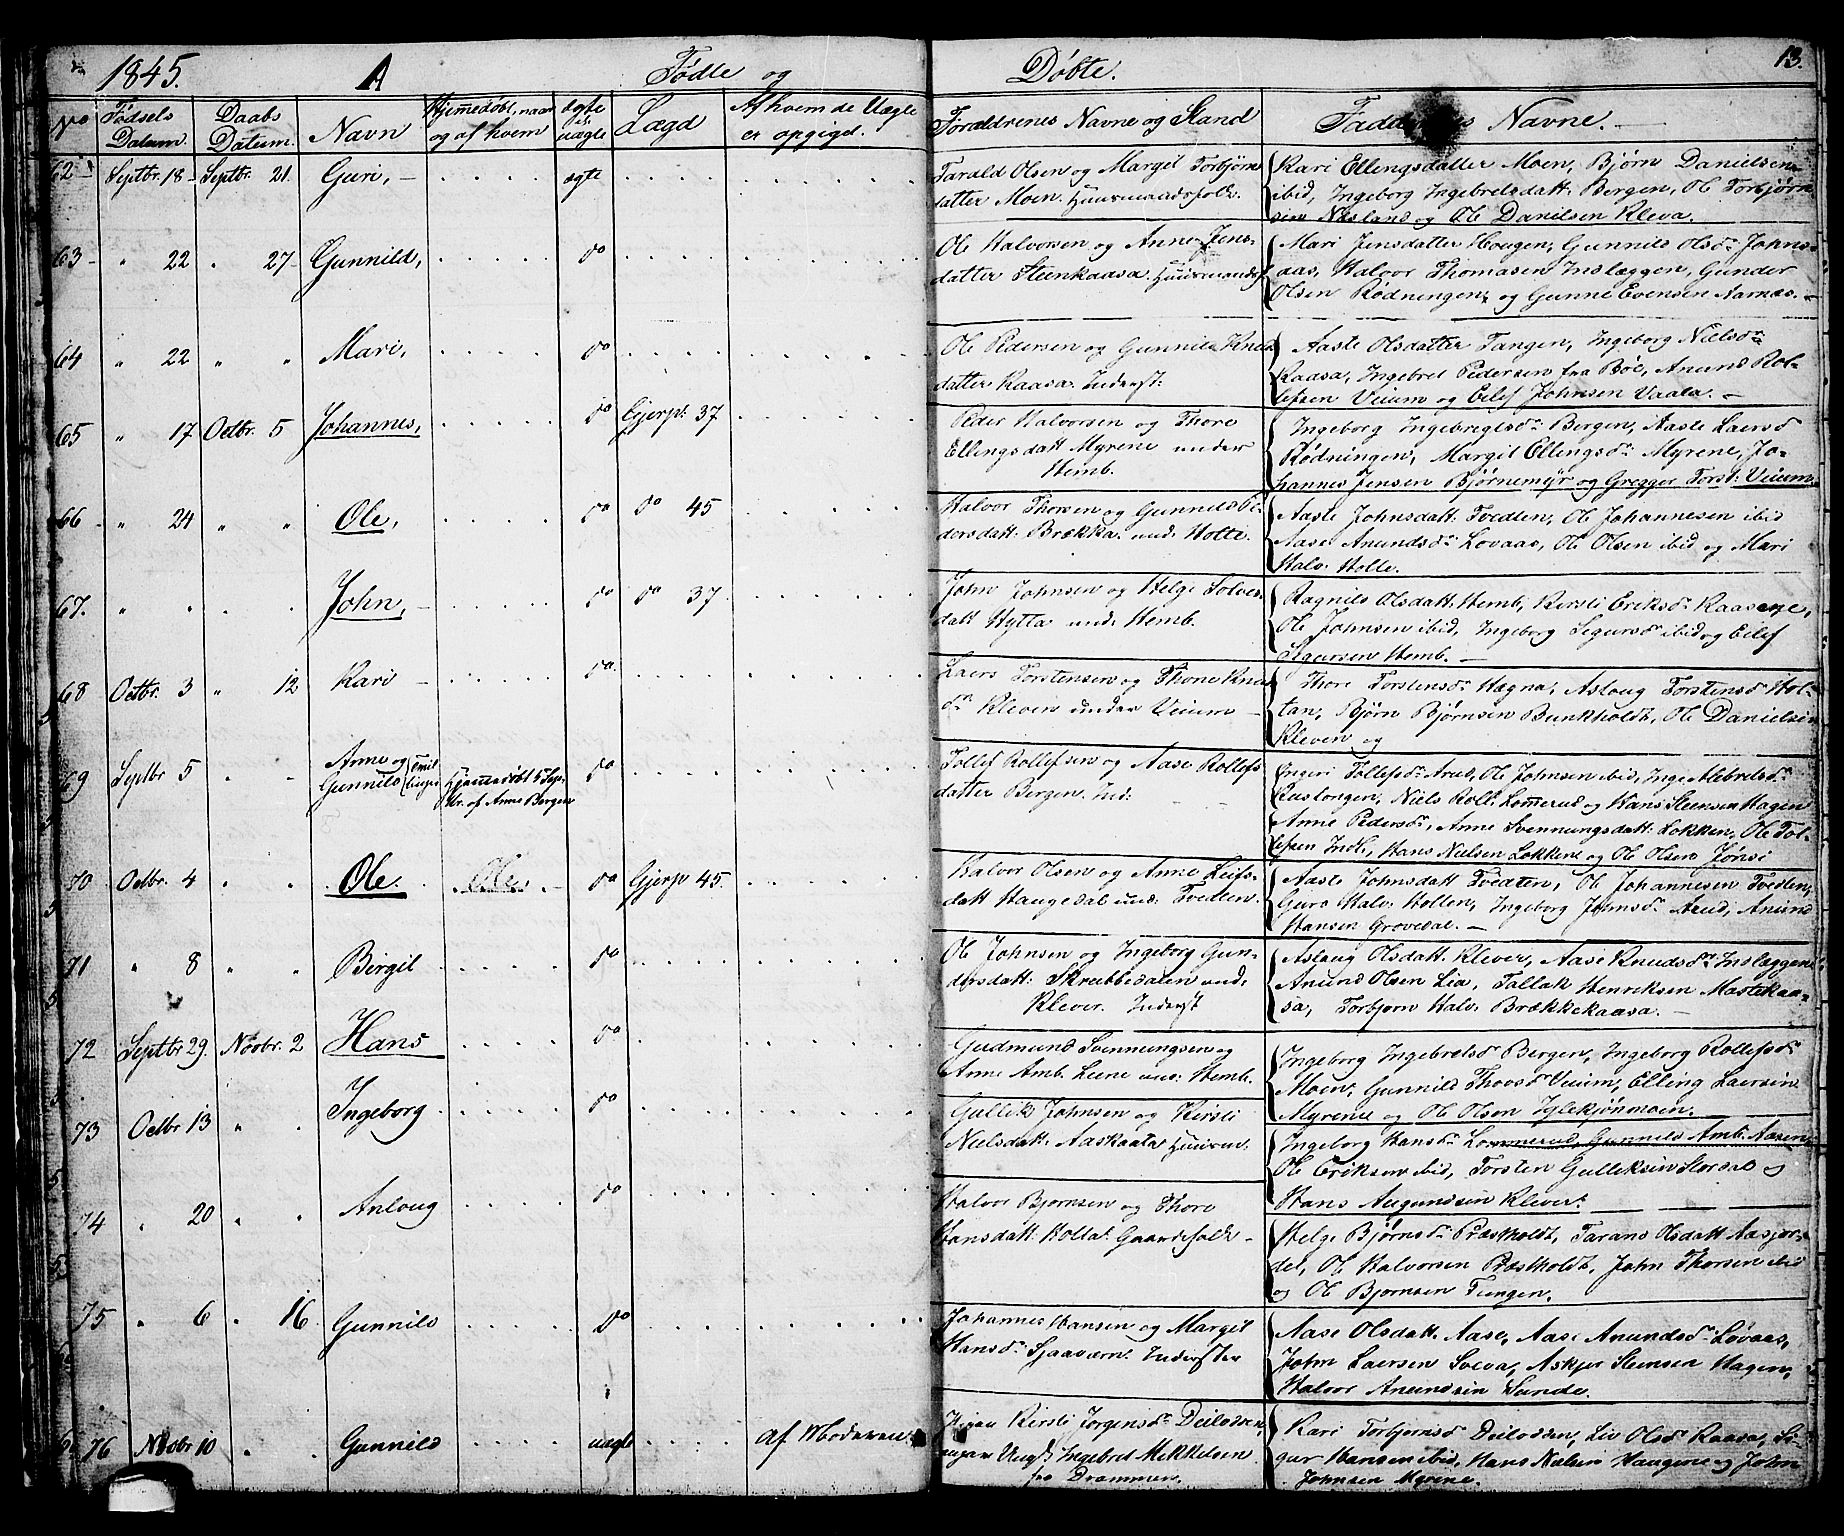 1845. A Fødte og Døbte. 13.
No Fødsels Datum. Daabs Datum. Navn Hjemmedøbt, naar og af hvem ægte el. uægte Lægd Af hvem de Uægte er opgivet. Forældrenes Navne og Stand Faddernes Navne.
62 Septbr. 18 Septbr. 21. Guri, ægte
Tarald Olsen og Margit Torbjørns
datter Moen. Huusmandsfolk.
Kari Ellingsdatter Moen, Bjørn Danielsen
ibid, Ingeborg Ingebretsdatt: Bergen, Ol Torbjørn
sen Næsland og Ole Danilsen Kleva.
63 " 22 " 27 Gunnild, do
Ole Halvorsen og Anne Jens-
datter Steenkaasa. Huusmandsf.
Mari Jensdatter Hougen, Gunnild Olsdr. Johns-
aas, Halvor Thomasen Inslæggen, Gunder
Olsen Rødningen, og Gunne Evensen Aarnæs.
64 " 22 " " Mari, do
Ole Pedersen og Gunnild Knuds
datter Kaasa. Inderst:
Aaste Olsdatter Tangen, Ingeborg Nielsdr.
Kaasa, Ingebret Pedersen fra Bøe, Anund Rol-
lefsen Veium og Eilef Johnsen Vaala.
65 " 17 Octbr. 5 Johannes, do Gjerp: 37
Peder Halvorsen og Thore
Ellingsdatt Myrene under
Hemb.
Ingeborg Ingebregtsdr. Bergen, Aaste Laersd
Rødningen, Margit Ellingsdr. Myrene, Jo-
hannes Jensen Bjørnemyr og Gregger Torst: Veium
66 " 24 " " Ole, do do 45
Halvor Thorsen og Gunnild Pe-
dersdatt: Brækka. und: Holte.
Aaste Johnsdatt: Tvedten, Ole Johannesen ibid
Aase Anundsdr. Lovaas, Ole Olsen ibid og Mari
Halv: Holte.
67. " " " " John, do do 37
John Johnsen og Helge Solves-
datt Hytta und: Hemb.
Ragnild Olsdatt: Hemb, Kersti Eriksdr. Kaasene,
Ole Johnsen ibid, Ingeborg Sigursdr. ibid og Eilef
Sigursen Hemb.
68 Octbr. 3 " 12 Kari do
Laers Torstensen og Thone Knuds
dr. Kleven under Veium
Thore Torstensdr. Hægna, Asloug Torstensd Hol-
tan, Bjørn Bjørnsen Bunkholdt, Ole Danielsen
Kleven og
69 Septbr 5 " " Anne og
Gunnild Hjemmedøbt 5 Sep-
tbr. af Anne Bergen do
Tollef Rollefsen og Aase Rollefs
datter Bergen. Ind:
Ingeri Tollefsdr. Arud, Ole Johnsen ibid, Inge Alebretsdr.
Rustongen, Niels Roll: Lommerud og Hans Steensen Hagen
Anne Pedersdr., Anne Svennungsdatt: Lokken, Ole Tol-
lefsen Indl:, Hans Nielsen Lokkene og Ole Olsen Jønsi
70 Octbr. 4 " " Ole. Ole do Gjerp 45.
Halvor Olsen og Anne Leifs-
datt Haugedal und: Tvedten.
Aaste Johnsdatt Tvedten, Ole Johannesen Tvedten,
Guro Halv: Holten, Ingeborg Johnsdr. Arud, Anund
Hansen Grovedal.
71 " 8 " " Bergit do
Ole Johnsen og Ingeborg Gun-
dersdatt: Skrubbedalen und:
Klever. Inderst
Aslaug Olsdatt: Klever, Aase Knudsdr. Inslæggen
Anund Olsen Lia, Tallak Henriksen Mastekaa-
sa, Torbjorn Halv: Brækkekaasa.
72 Septbr 29. Novbr. 2 Hans do
Gudmund Svennungsen og
Anne Amb: Leene und: Hemb.
Ingeborg Ingebretsdr. Bergen, Ingeborg Rollefsdr.
Moen, Gunnild Thovsdr. Veium, Elling Laersen
Myrene og Ole Olsen Jylekjønmoen.
73 Octbr 13 " " Ingeborg do
Gullik Johnsen og Kirsti
Nielsdatt: Aaskaata. Huusm.
Ingeborg Hansdr. Lommerud, Gunnild Amb: Aasen
Ole Eriksen ibid, Torsten Gulliksen Stordal og
Hans Augundsen Klever.
74 " 20 " " Anloug do
Halvor Bjørnsen og Thore
Hansdatt: Holta. Gaardsfolk
Helge Bjørnsdr. Præstholdt, Tarans Olsdatt Aasjor-
det, Ole Halvorsen Præstholdt, John Thorsen ibid
og Ole Bjørnsen Tungen.
75 " 6 " 16 Gunnild do
Johannes Hansen og Margit
Hansdr. Sjaaværn. Inderster
Aase Olsdatt: Aase, Aase Anundsdr. Løvaas,
John Laersen Sveva, Askjer Steensen Hagen,
Halvor Anundsen Sunde.
76 Novbr 10 " " Gunnild uægte Af Moderen
Pigen Kersti Jorgensdr. Deilodden,
Ungkar Ingebret Mikkelsen
fra Drammen.
Kari Torbjornsdr. Deilodden, Liv Olsdr. Kaasa, Si-
gur Hansen ibid, Hans Nielsen Haugene og John
Johnsen Myrene.